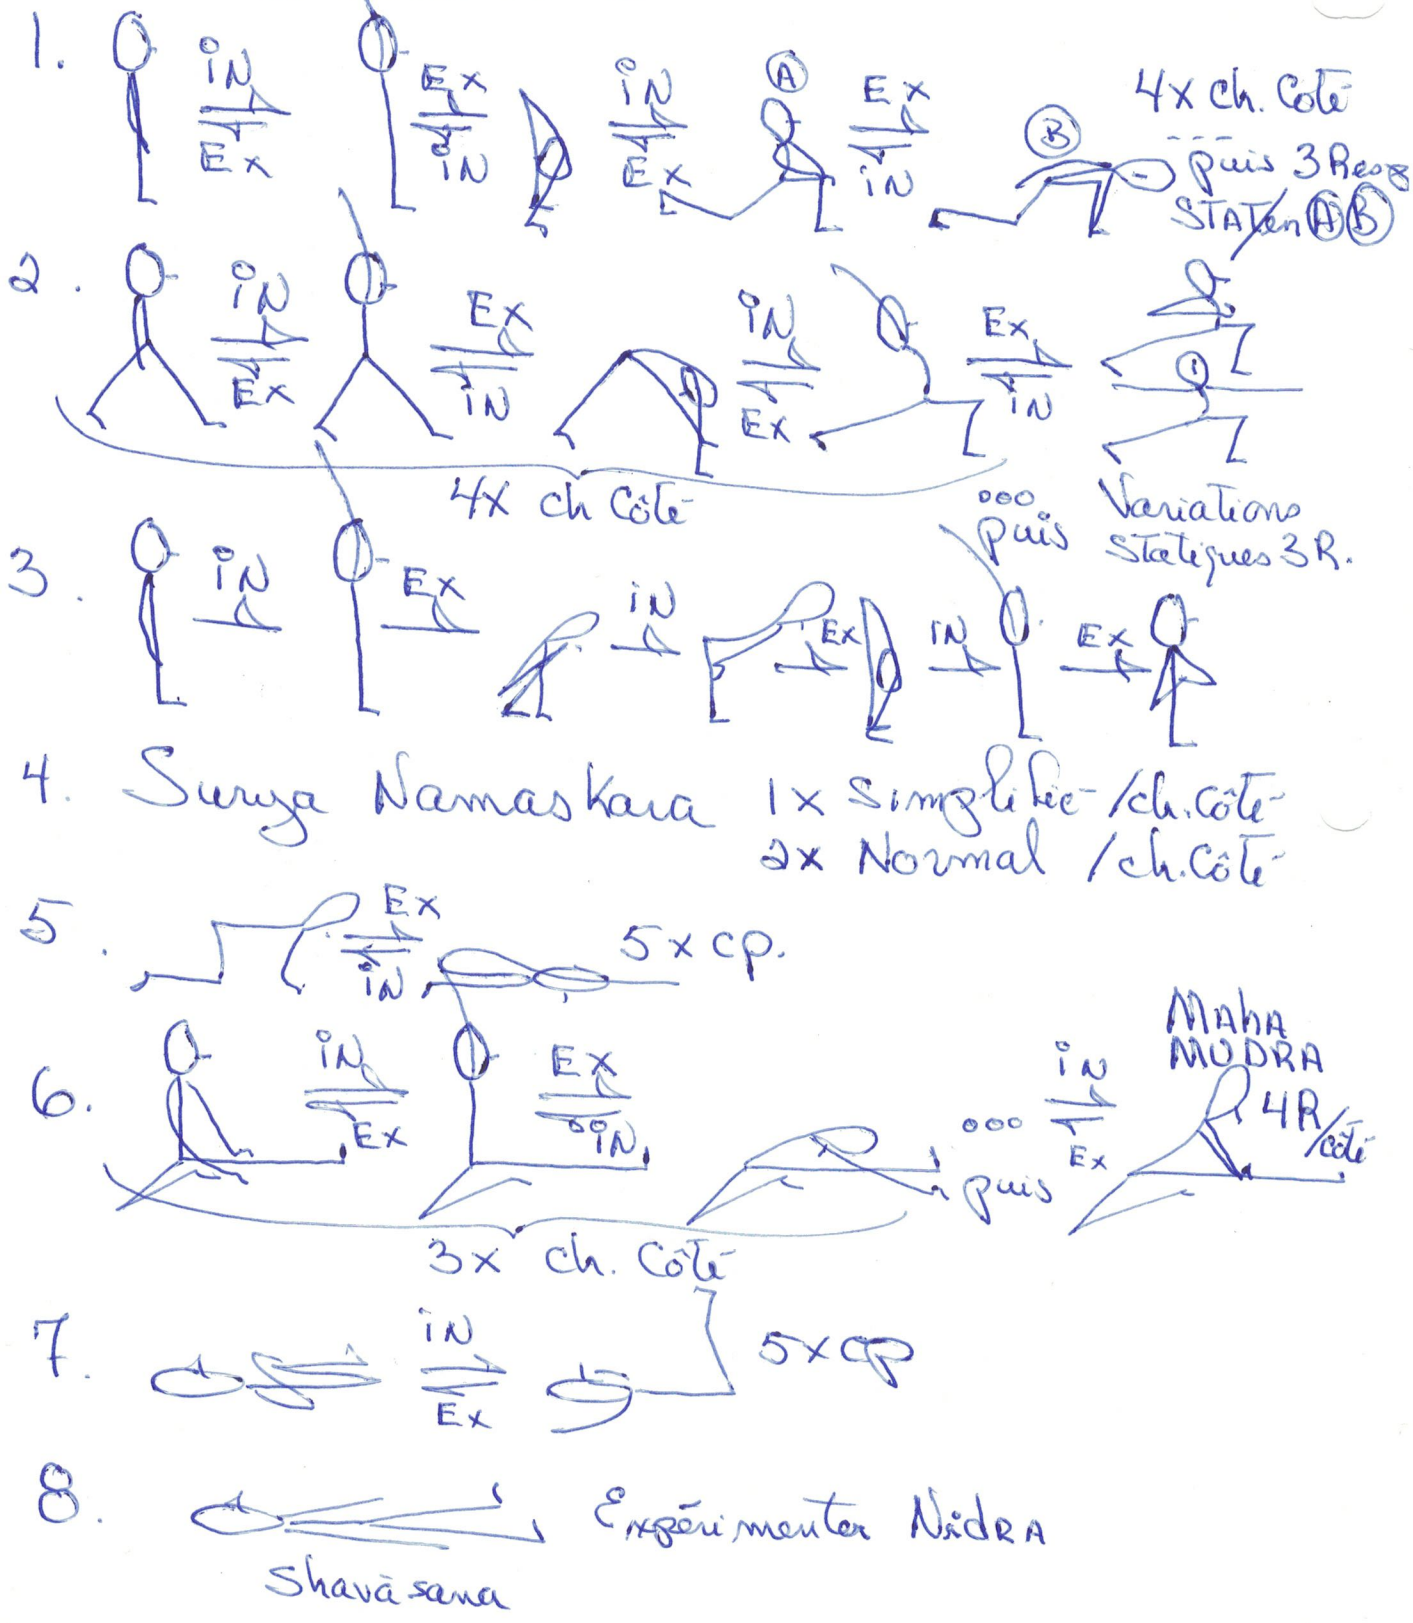 1. iN Ex Ex iN iN Ex A Ex iN B 4x ch. Côté
... puis 3 Resp
STAT/en A B
2. iN Ex Ex iN iN Ex Ex iN
4x ch Côté
... puis Variations
Statiques 3R.
3. iN Ex iN Ex iN Ex
4. Surya Namaskara 1x Simplifié /ch. Côté
2x Normal /ch. Côté
5. Ex iN 5x cp.
6. iN Ex Ex iN ... puis iN Ex MAhA
MUDRA
4R/côté
3x ch. Côté
7. iN Ex 5x cp
8. Expérimenter NidRA
Shavāsana